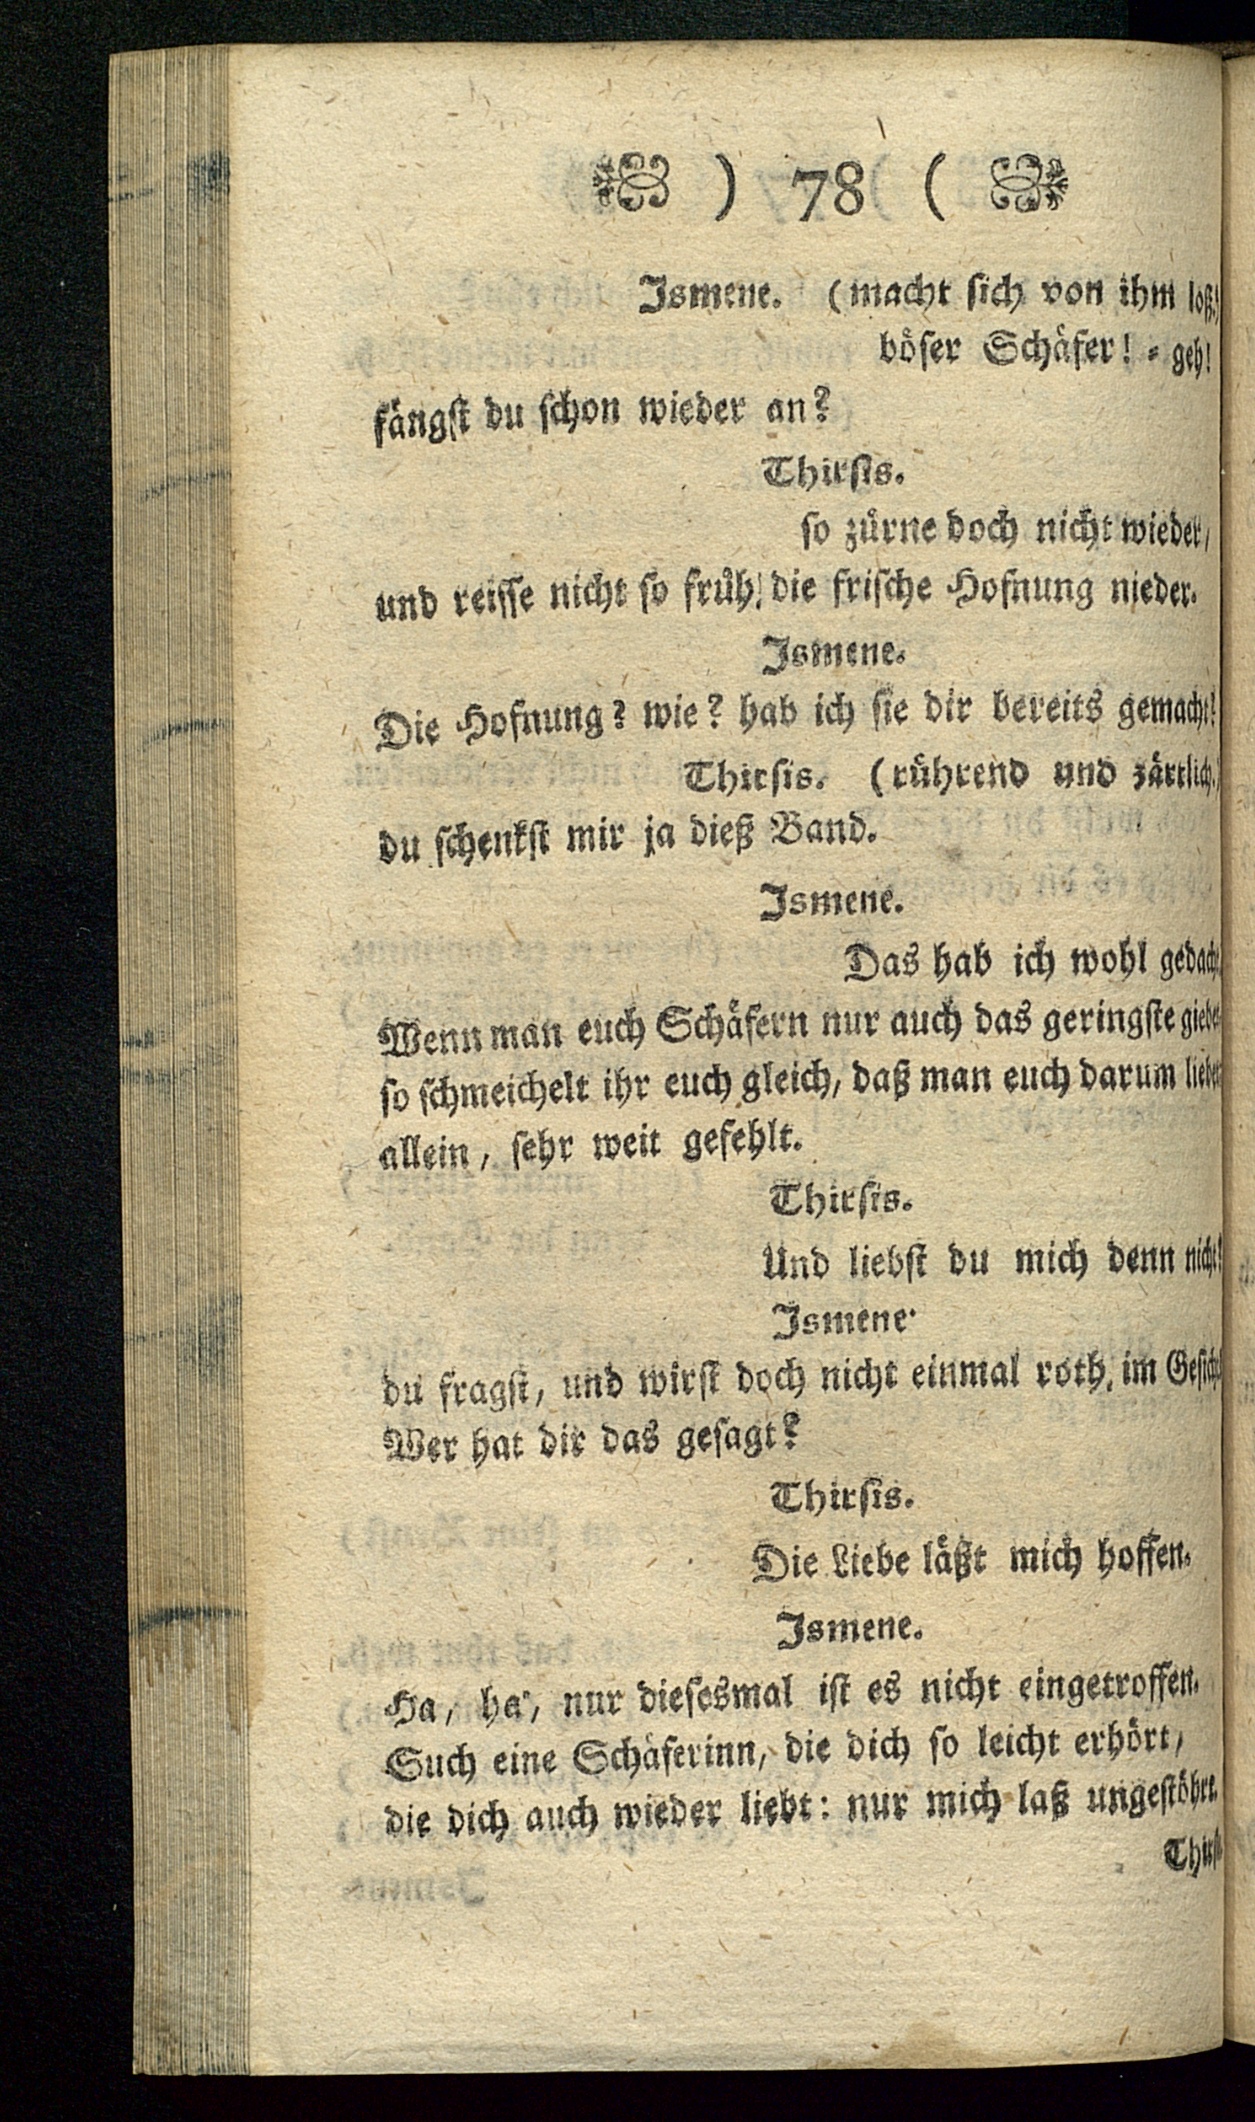 ) 78 (
Ismene. (macht sich von ihm loß.)
böser Schäfer! - geh!
fängst du schon wieder an?
Thirsis.
so zürne doch nicht wieder,
und reisse nicht so früh die frische Hofnung nieder.
Ismene.
Die Hofnung? wie? hab ich sie dir bereits gemacht?
Thirsis. (rührend und zärtlich.)
du schenkst mir ja dieß Band.
Ismene.
Das hab ich wohl gedacht.
Wenn man euch Schäfern nur auch das geringste giebet
so schmeichelt ihr euch gleich, daß man euch darum liebet
allein, sehr weit gefehlt.
Thirsis.
Und liebst du mich denn nicht?
Ismene.
du fragst, und wirst doch nicht einmal roth, im Gesicht?
Wer hat dir das gesagt?
Thirsis.
Die Liebe läßt mich hoffen.
Ismene.
Ha, ha, nur diesesmal ist es nicht eingetroffen.
Such eine Schäferinn, die dich so leicht erhört,
die dich auch wieder liebt: nur mich laß ungestöhrt.
Thirsis